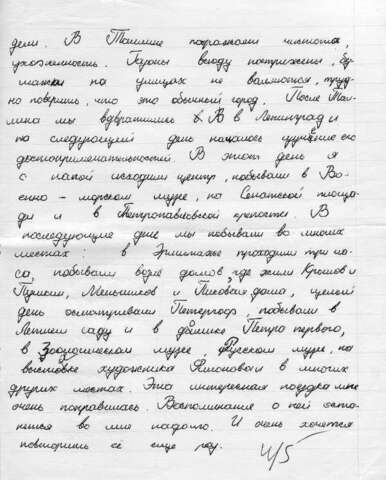 дели. В Таллине поразполи чистота,
ухоженность. Газоны всюду пострижены, бу-
мажки на улицах не валяются, труд-
но поверить, что это обычный город. После Тал-
лина мы возвратились В в Ленинград и
на следующий день началось изучение его
достопримечательностей. В этот день я
с папой исходили центр, побывали в Во-
енно-морском музее, на Сенатской площа-
ди и в Петропавловской крепости. В
последующие дне мы побывали во многих
местах в Эрмитаже проходили три ча-
са, побывали возле домов, где жили Крылов и
Пушкин, Меньшиков и Пиковая дама, целый
день осматривали Петергоф, побывали в
Летнем саду и в домике Петра первого,
в Зоологическом музее, Русском музее, на
выставке художника Филонова и в многих
других местах. Эта интересная поездка мне
очень понравилась. Воспоминание о ней оста-
нется во мне надолго. И очень хочется
повторить её ещё раз.
4/5